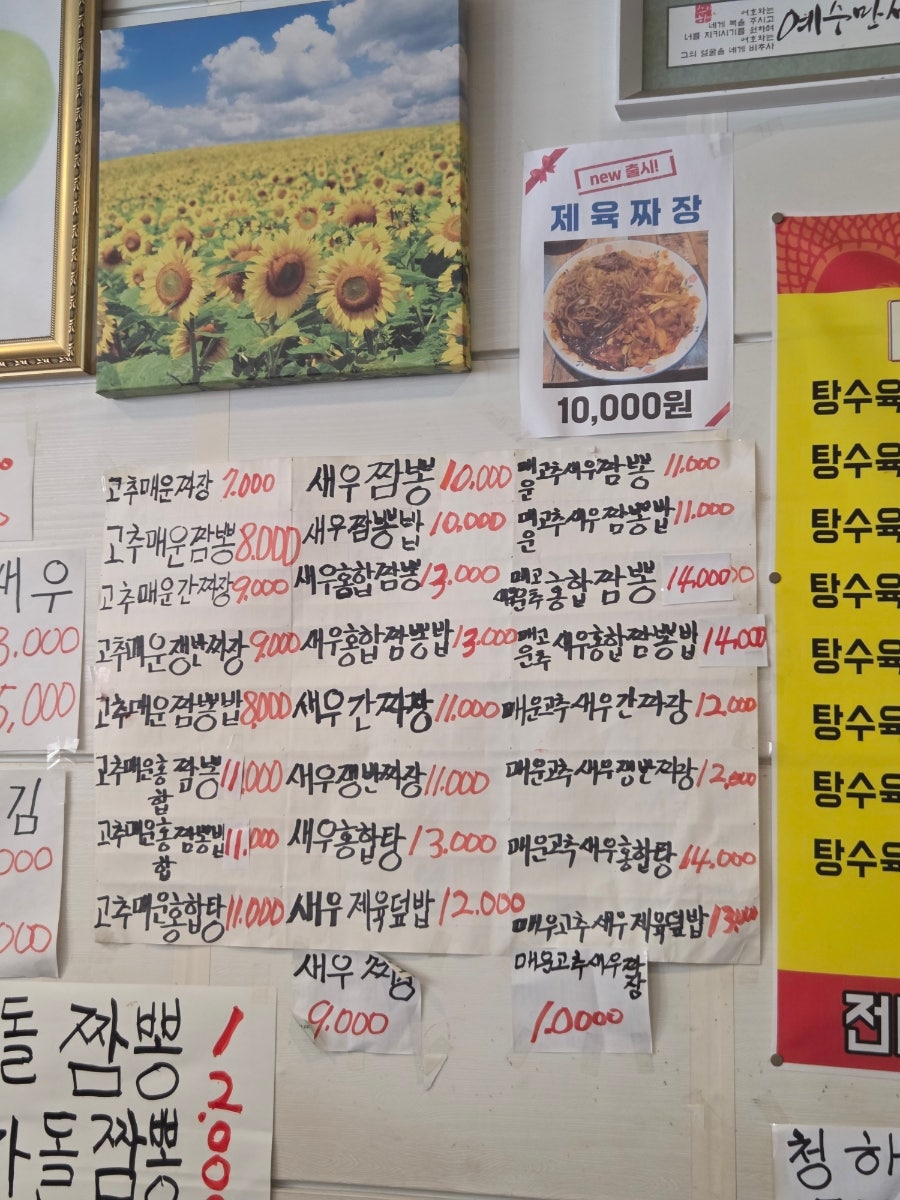 여호와는
네게 복을 주시고
너를 지키시기를 원하며
여호와는
그의 얼굴을 네게 비추사
예수만
new 출시!
제육짜장
10,000원
고추매운짜장 7.000
고추매운짬뽕 8.000
고추매운간짜장 9,000
고추매운쟁반짜장 9,000
고추매운짬뽕밥 8,000
고추매운홍합짬뽕 11,000
고추매운홍합짬뽕밥 11.000
고추매운홍합탕 11.000
새우짬뽕 10.000
새우짬뽕밥 10.000
새우홍합짬뽕 13.000
새우홍합짬뽕밥 13.000
새우간짜장 11.000
새우쟁반짜장 11.000
새우홍합탕 13.000
새우제육덮밥 12.000
새우짜장
9.000
매운고추새우짬뽕 11.000
매운고추새우짬뽕밥 11.000
매운고추새우홍합짬뽕 14.000
매운고추새우홍합짬뽕밥 14.000
매운고추새우간짜장 12.000
매운고추새우쟁반짜장 12,000
매운고추새우홍합탕 14.000
매우고추새우제육덮밥 13.000
매운고추새우짜장
10.000
새우
3.000
5,000
김
000
000
돌짬뽕 12.00
돌짬뽕
탕수육
탕수육
탕수육
탕수육
탕수육
탕수육
탕수육
탕수육
전
청하